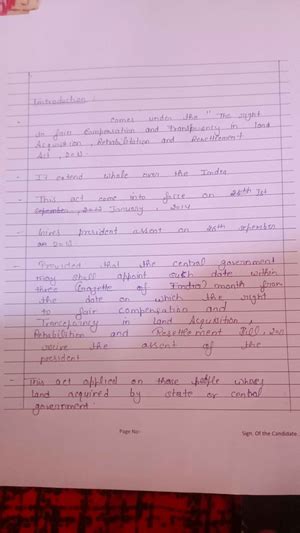 Introduction :
- Comes under the " The right
to fair Compensation and Transparency in land
Acquisition, Rehabilitation and Resettlement
Act, 2013.
- It extend whole over the India
- This act come into force on 1st
January, 2014
- Gives president assent on 26th september
on 2013
- Provided that the central government
may shall appoint such date within
three (Gazette of India) month from
the date on which the right
to fair compensation and
in land Acquisition,
Rehabilition and Resettlement Bill,
the assent of the
president
- This act applied on those people whose
land acquired by state or central
government.
Page No:-
Sign. Of the Candidate